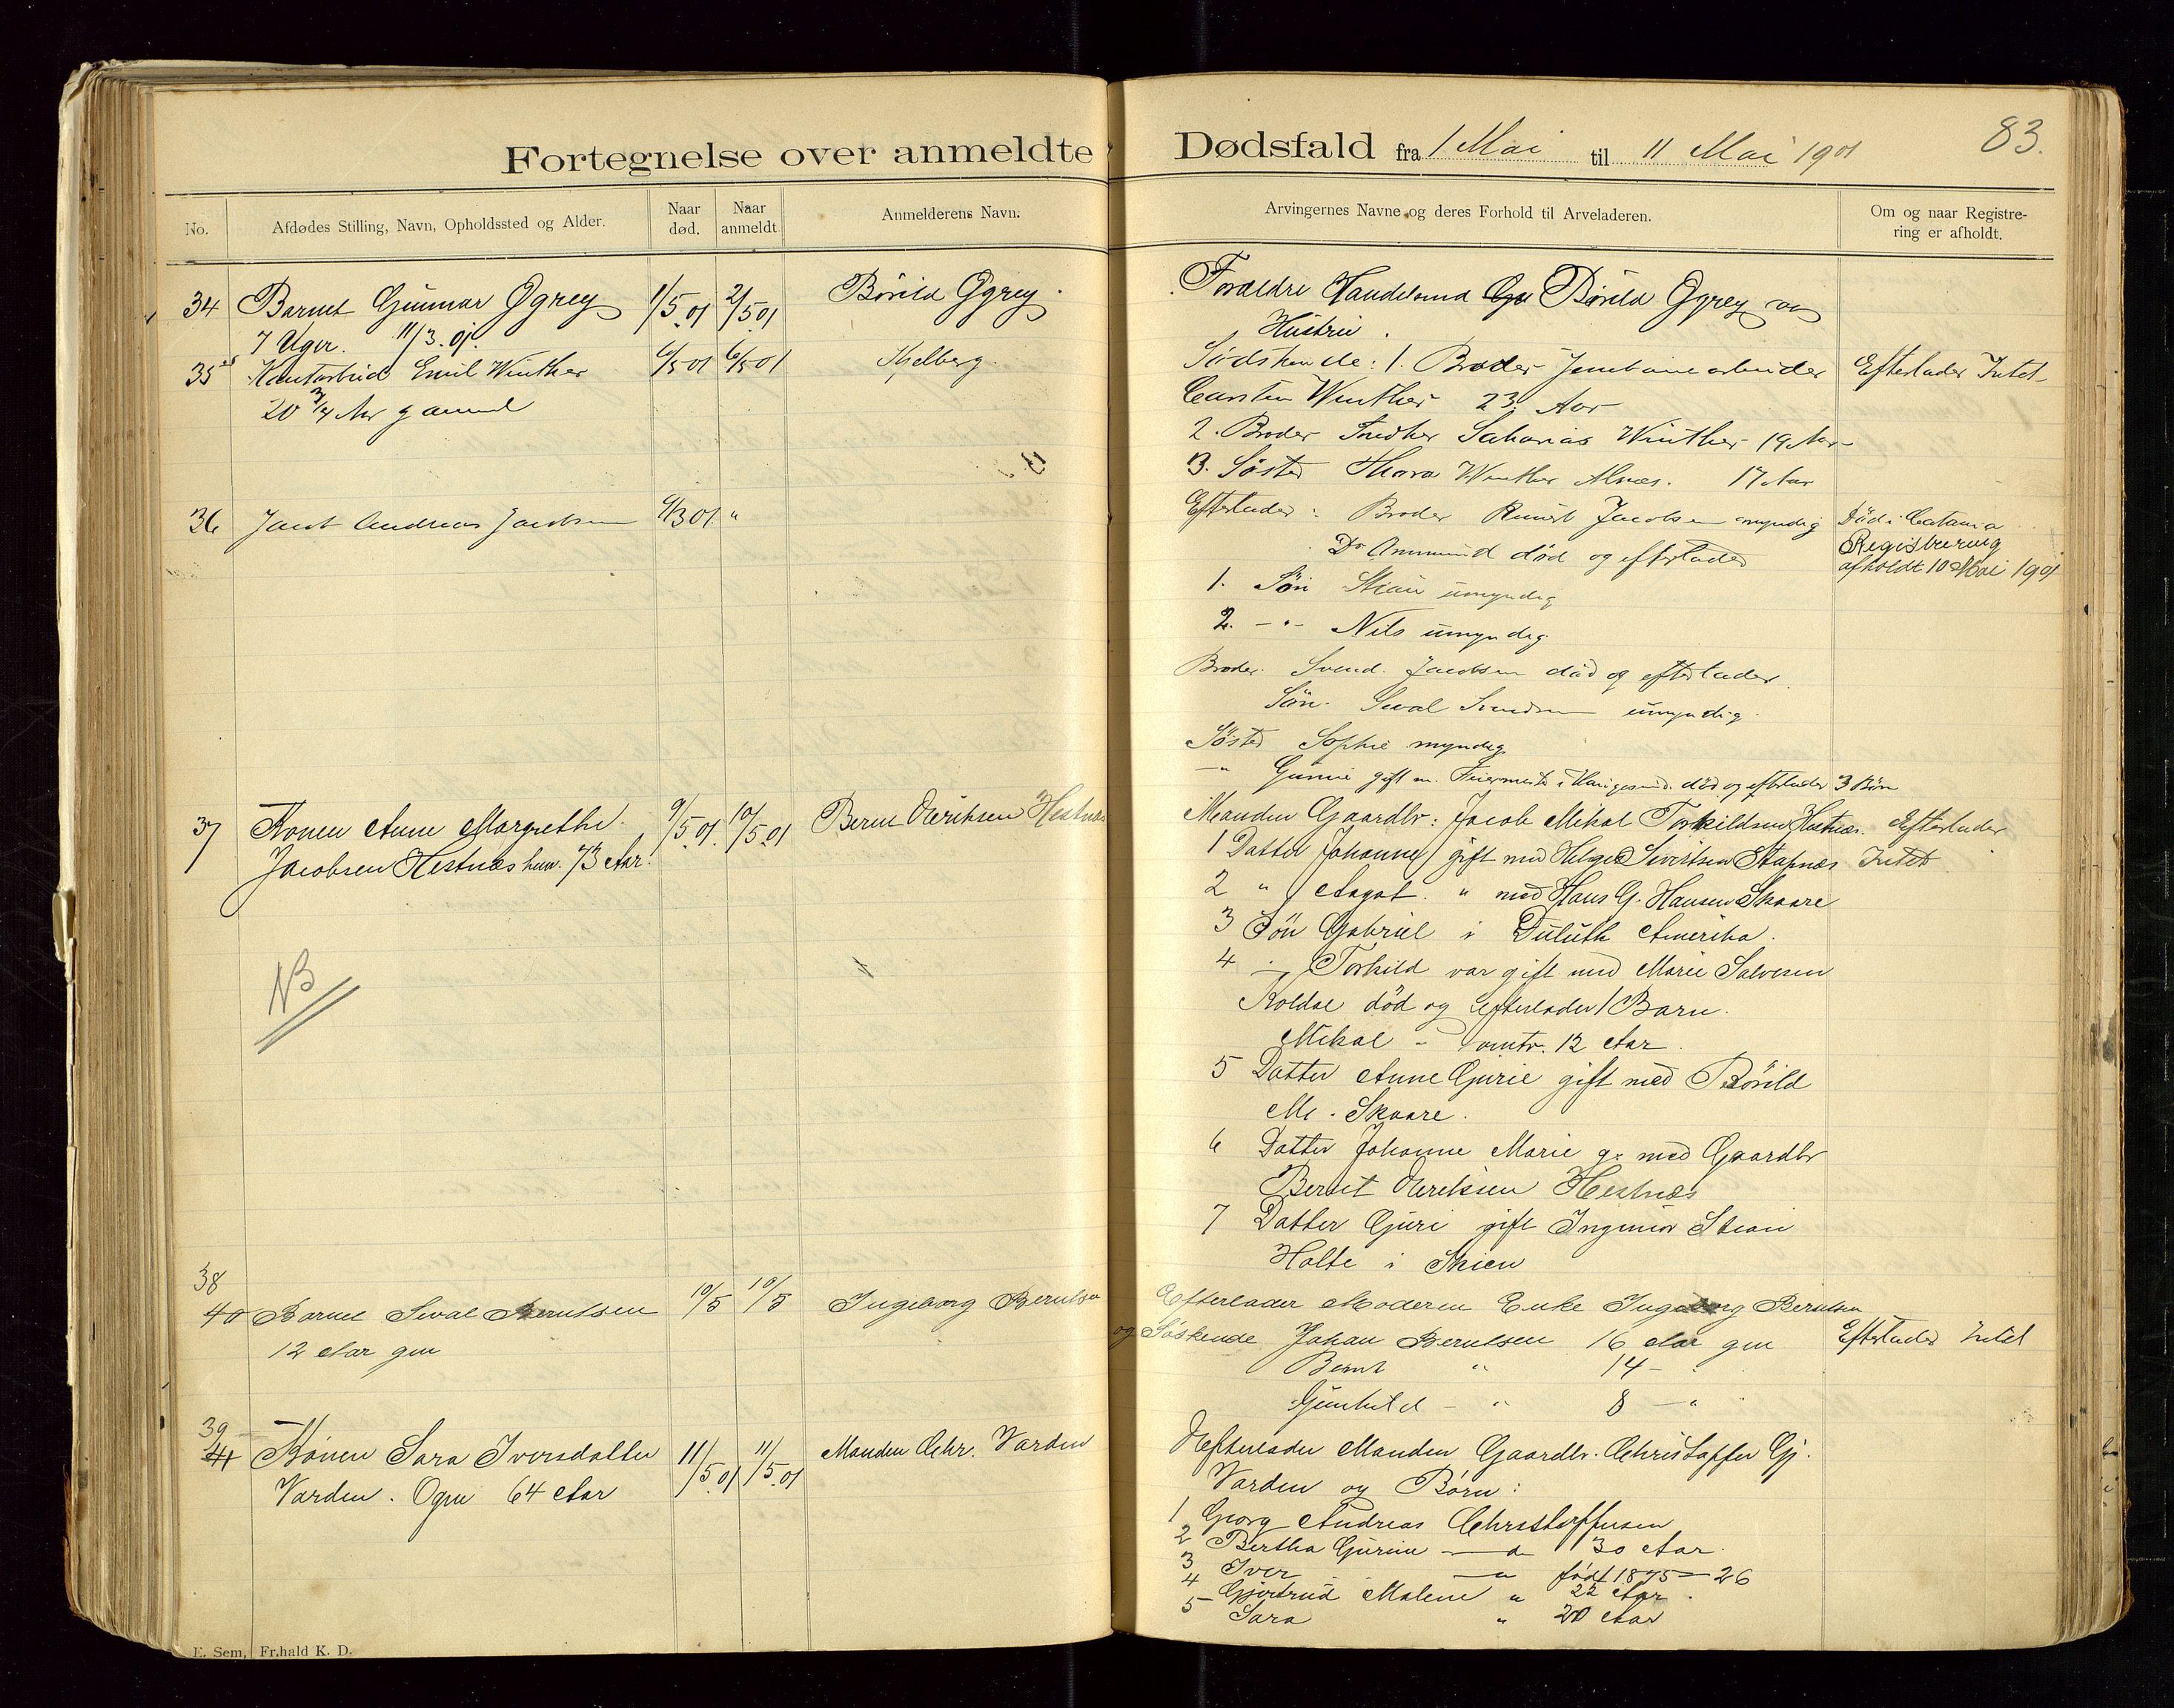 Fortegnelse over anmeldte Dødsfald fra 1 Mai til 11 Mai 1901
83.
No.
Afdødes Stilling, Navn, Opholdssted og Alder.
Naar død.
Naar anmeldt
Anmelderens Navn.
Arvingernes Navne og deres Forhold til Arveladeren.
Om og naar Registre-
ring er afholdt.
34 Barnet Gunnar Ggrey 1/5.01 2/5.01 Børild Ggrey.
7 Uger. 11/3.01.
Forældre Børild Ggrey og
Hustru.
35 Emil Winther 6/5 01 6/5 01 Kjelberg.
20 3/4 Aar gammel
Sødskende: 1. Broder
Carsten Winther 23 Aar
2. Broder Snedker Sakarias Winther 19 Aar
3. Søster Thora Winther Alnæs. 17 Aar
Efterlader Intet
36 Jacob Andreas Jacobsen 4/3 01. "
Efterlader: Broder Jacobsen myndig
Do Ammund død og efterlader
1. Søn Stian umyndig
2. - " - Nils umyndig
Broder. Svend. Jacobsen død og efterlader
Søn. Sival Svendsen umyndig.
Søster Sophie myndig
— " Gunie gift m. død og efterlader 3 Børn
Död i Catania
Registrering
afholdt 10 Mai 1901
37 Konen Anne Margrethe 9/5.01. 10/5.01 Bernt Eeriksen Hestnæs
Jacobsen Hestnæs hum. 73 Aar.
NB
Manden Gaardbr: Jacob Mikal Torkildsen Hestnæs.
1 Datter Johanne gift med Helge Sivertsen Stapnæs
2 " Aagot. " med Hans G. Hansen Skaare
3 Søn Gabriel i Duluth Amerika.
4 - " Torkild var gift med Marie Salvesen
Koldal død og efterlader 1 Barn.
Mikal - omtr. 12 Aar
5 Datter Anne Gurie gift med Børild
M. Skaare.
6 Datter Johanne Marie g. med Gaardbr
Bernt Eeriksen Hestnæs
7 Datter Guri gift Ingeniør Stian
Holte i Skien
Efterlader
Intet
38
40 Barnet Sival Berntsen 10/5 10/5 Ingeborg Berntsen
12 Aar gm
Efterlader Moderen Enke Ingeborg Berntsen
og Søskende Johan Berntsen 16 Aar gm
Bernt " 14 - "
Gunhild - " 8 - "
Efterlader Intet
39
41 Konen Sara Iversdatter 11/5.01 11/5.01 Manden Chr. Varden
Varden. Ogne 64 Aar
Efterlader Manden Gaardbr. Christoffer Gj.
Varden og Børn:
1 Georg Andreas Christoffersen
2 Bertha Gurine — " 30 Aar.
3 Iver — " født 1875 — 26
4 Gjertrud Malene " 22 Aar.
5 Sara " 20 Aar
E. Sem, Fr.hald K. D.